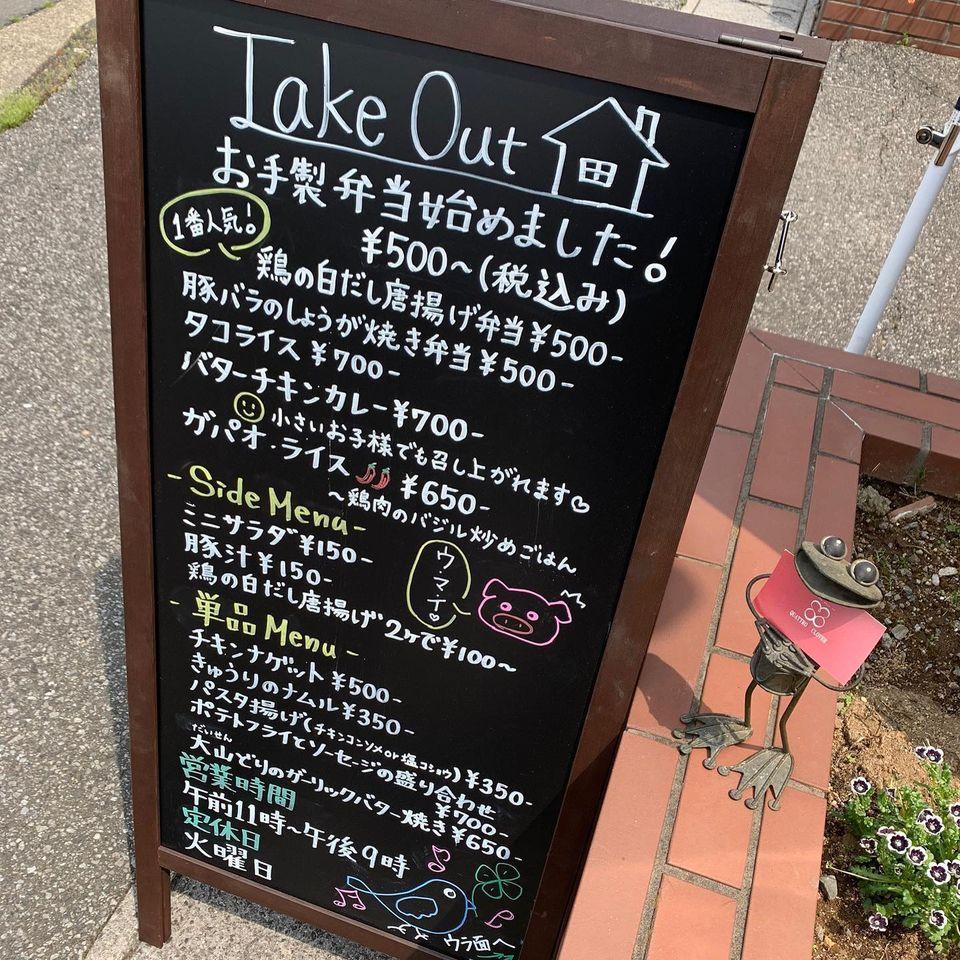 Take Out
お手製弁当始めました!
1番人気!
¥500〜(税込み)
鶏の白だし唐揚げ弁当¥500-
豚バラのしょうが焼き弁当¥500-
タコライス¥700-
バターチキンカレー¥700-
小さいお子様でも召し上がれます♡
ガパオ・ライス ¥650-
〜鶏肉のバジル炒めごはん
- Side Menu -
ミニサラダ¥150-
豚汁¥150-
鶏の白だし唐揚げ2ヶで¥100〜
ウマイ♡
- 単品Menu -
チキンナゲット¥500-
きゅうりのナムル¥350-
パスタ揚げ(チキンコンソメor塩コショウ)¥350-
ポテトフライとソーセージの盛り合わせ
¥700-
だいせん
大山どりのガーリックバター焼き¥650-
営業時間
午前11時〜午後9時
定休日
火曜日
ウラ面へ
QUATTRO CLOVER